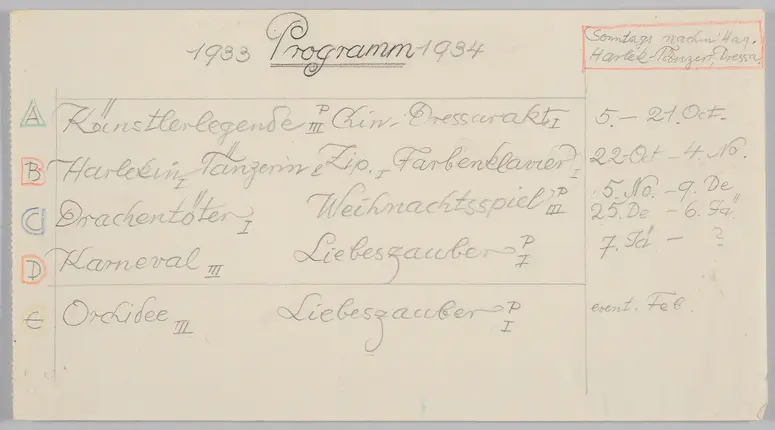 1933 Programm 1934
Sonntags nachm. Har.
Harlek-Tänzer, Dressu.
A Künstlerlegende P III Chin. Dressurakt I 5. – 21. Oct.
B Harlekin I Tänzerin I Zip. I Farbenklavier I 22. Oct – 4. No.
5. No. – 9. De
C Drachentöter I Weihnachtsspiel P III 25. De – 6. Jä.
D Karneval III Liebeszauber P I 7. Jä – ?
E Orchidee III Liebeszauber P I event. Feb.